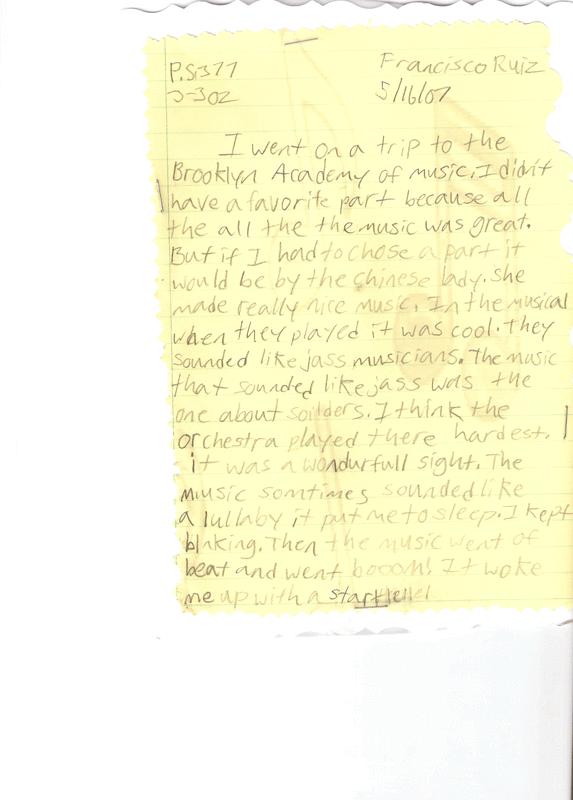 P.S.377 Francisco Ruiz
3-302 5/16/07
I went on a trip to the
Brooklyn Academy of music. I didn't
have a favorite part because all
the all the the music was great.
But if I had to chose a part it
would be by the chinese lady. She
made really nice music. In the musical
when they played it was cool. They
sounded like jass musicians. The music
that sounded like jass was the
one about soilders. I think the
orchestra played there hardest.
it was a wondurfull sight. The
miusic somtimes sounded like
a lullaby it put me to sleep. I kept
blnking. Then the music went of
beat and went booom! It woke
me up with a